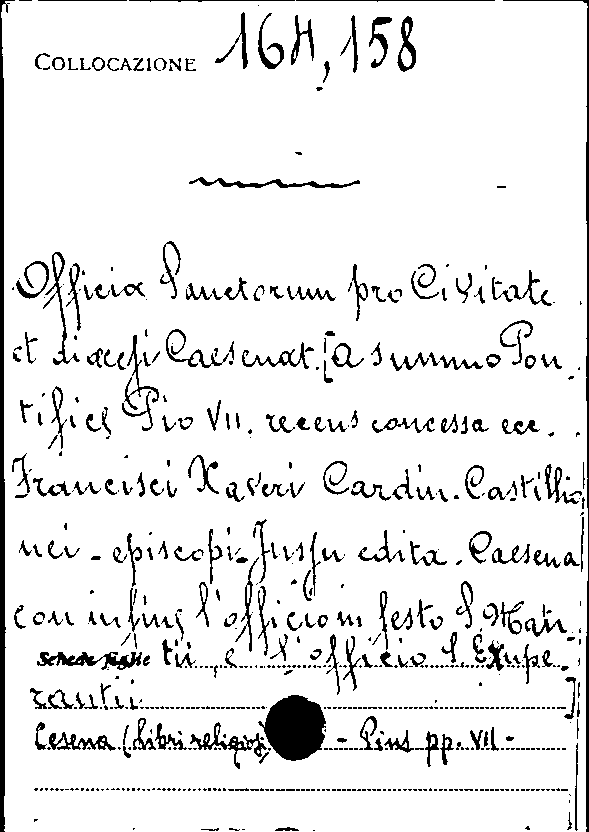 COLLOCAZIONE 16H, 158
Officia Sanctorum pro Civitate
et diœcesi Caesenat. [a summo Pon
tifice Pio VII. recens concessa ecc.
Francisci Xaveri Cardin. Castillio
nei - episcopi - Jussu edita. Caesena
con infine l'officio in festo S. Mau
Schede figlie tii e l'officio S. Exupe-
rantii ]
Cesena (Libri religiosi) - Pius pp. VII -